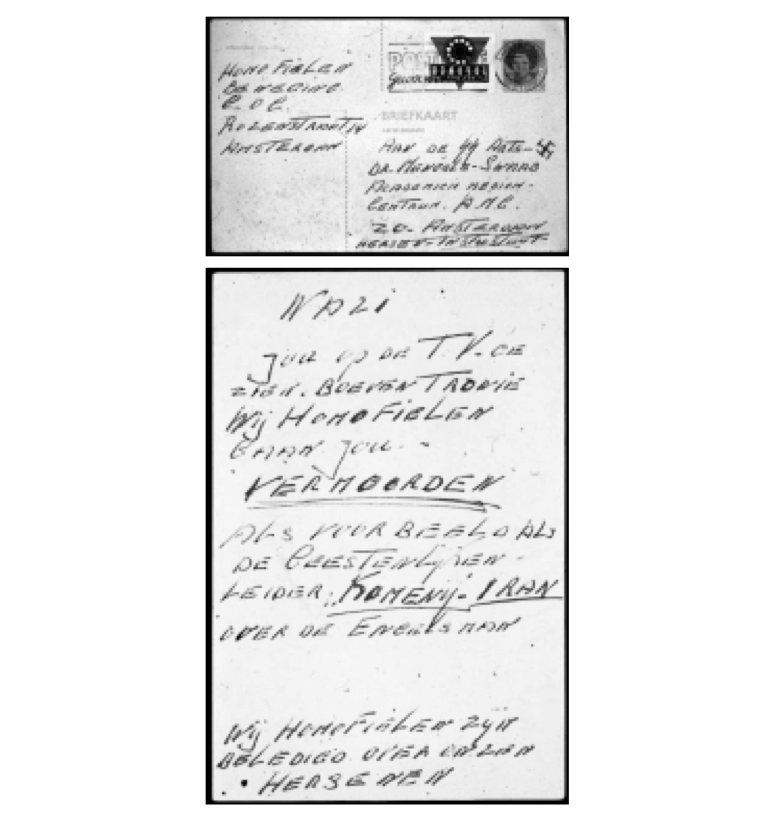 HOMOFIELEN
BEWEGING
C.O.C.
ROZENSTRAAT 14
AMSTERDAM
POST
BRIEFKAART
AAN DE SS ARTS-
DR. MENGELE-SWAAB
ACADEMICH MEDICH-
CENTRUM. A.M.C.
ZO. AMSTERDAM
HERSEN-INSTUTUUT
NAZI
JOU OP DE T.V. GE
ZIEN. BOEVEN TRONIE
Wij HOMOFIELEN
GAAN JOU -
VERMOORDEN
ALS VOORBEELD ALS
DE GEESTENLIJKEN-
LEIDER; KOMENIJ- IRAN
OVER DE ENGELSMAN
Wij HOMOFIELEN ZIJN
BELEDIGD OVER ONZEN
HERSENEN